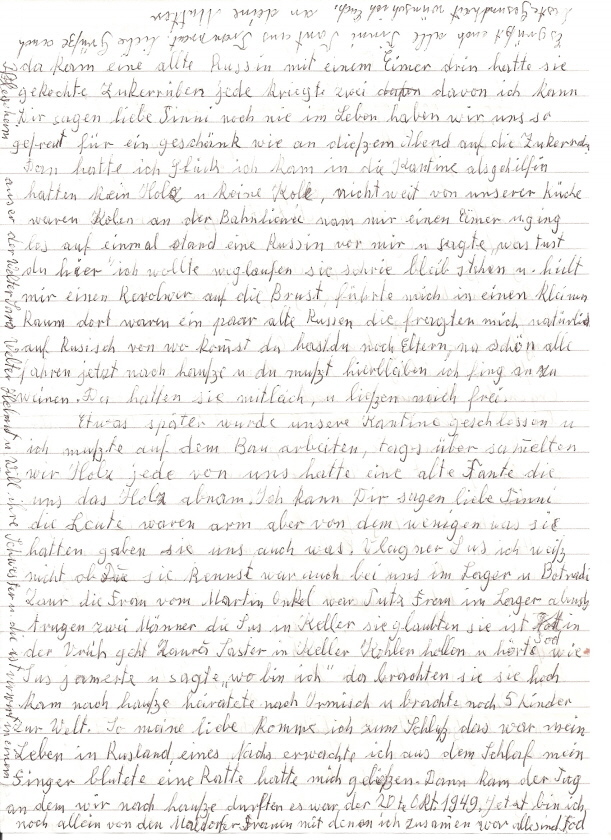 da kam eine allte Russin mit einem Eimer drin hatte sie
gekochte Zukerrüben jede kriegte zwei davon ich kann
Dir sagen liebe Tinni noch nie im Leben haben wir uns so
gefreut für ein geschänk wie an dießem Abend auf die Zukerrüb
Dan hatte ich Glück ich kam in die Kantine alsgehilfin
hatten kein Holz u keine Kole, nicht weit von unserer Küche
waren Kolen an der Bahnlienie nam mir einen Eimer u ging
los auf einmal stand eine Russin vor mir u sagte „was tust
du hier" ich wollte weglaufen sie schrie bleib stehen u. hielt
mir einen Revolwer auf die Brust, führte mich in einen kleinen
Raum dort waren ein paar alte Russen die fragten mich natürlich
auf Rusisch von wo komst du hast du noch Eltern, na schön alle
fahren jetzt nach hauße u du mußt hierbleiben ich fing an zu
weinen. Da hatten sie mitleich, u ließen mich frei.
Etwas später wurde unsere Kantine geschlossen u
ich mußte auf dem Bau arbeiten, tags über samelten
wir Holz jede von uns hatte eine alte Tante die
uns das Holz abnam. Ich kann Dir sagen liebe Tinni
die Leute waren arm aber von dem wenigen was sie
hatten gaben sie uns auch was. Wagner Sus ich weiß
nicht ob Du sie kennst war auch bei uns im Lager u
die Frau vom Martin Onkel war Putz Frau im Lager abends
trugen zwei Männer die Sus in Keller sie glaubten sie ist Tod in
der Früh geht in Keller Kohlen hollen u hörte wie
Sus jamerte u sagte „wo bin ich" da brachten sie sie hoch
kam nach hauße heiratete nach Urmisch u brachte noch 5 kinder
Zur Welt. So meine liebe komme ich zum Schluß das war mein
Leben in Rusland, eines Nachs erwachte ich aus dem Schlaf mein
Finger blutete eine Ratte hatte mich gebißen. Dann kam der Tag
an dem wir nach hauße durften es war der 20te Okt 1949. Jetzt bin ich
noch allein von den Frauen mit denen ich zusamen war alle sind Tod
Pflegeheim auser der Walter Walter Helmut u Willi ihre Schwester u die ist in einem
Es grüßt euch alle Tinni Tante ins liebe Grüße auch
an deine Mutter.
Gesundheit wünsch ich Euch.